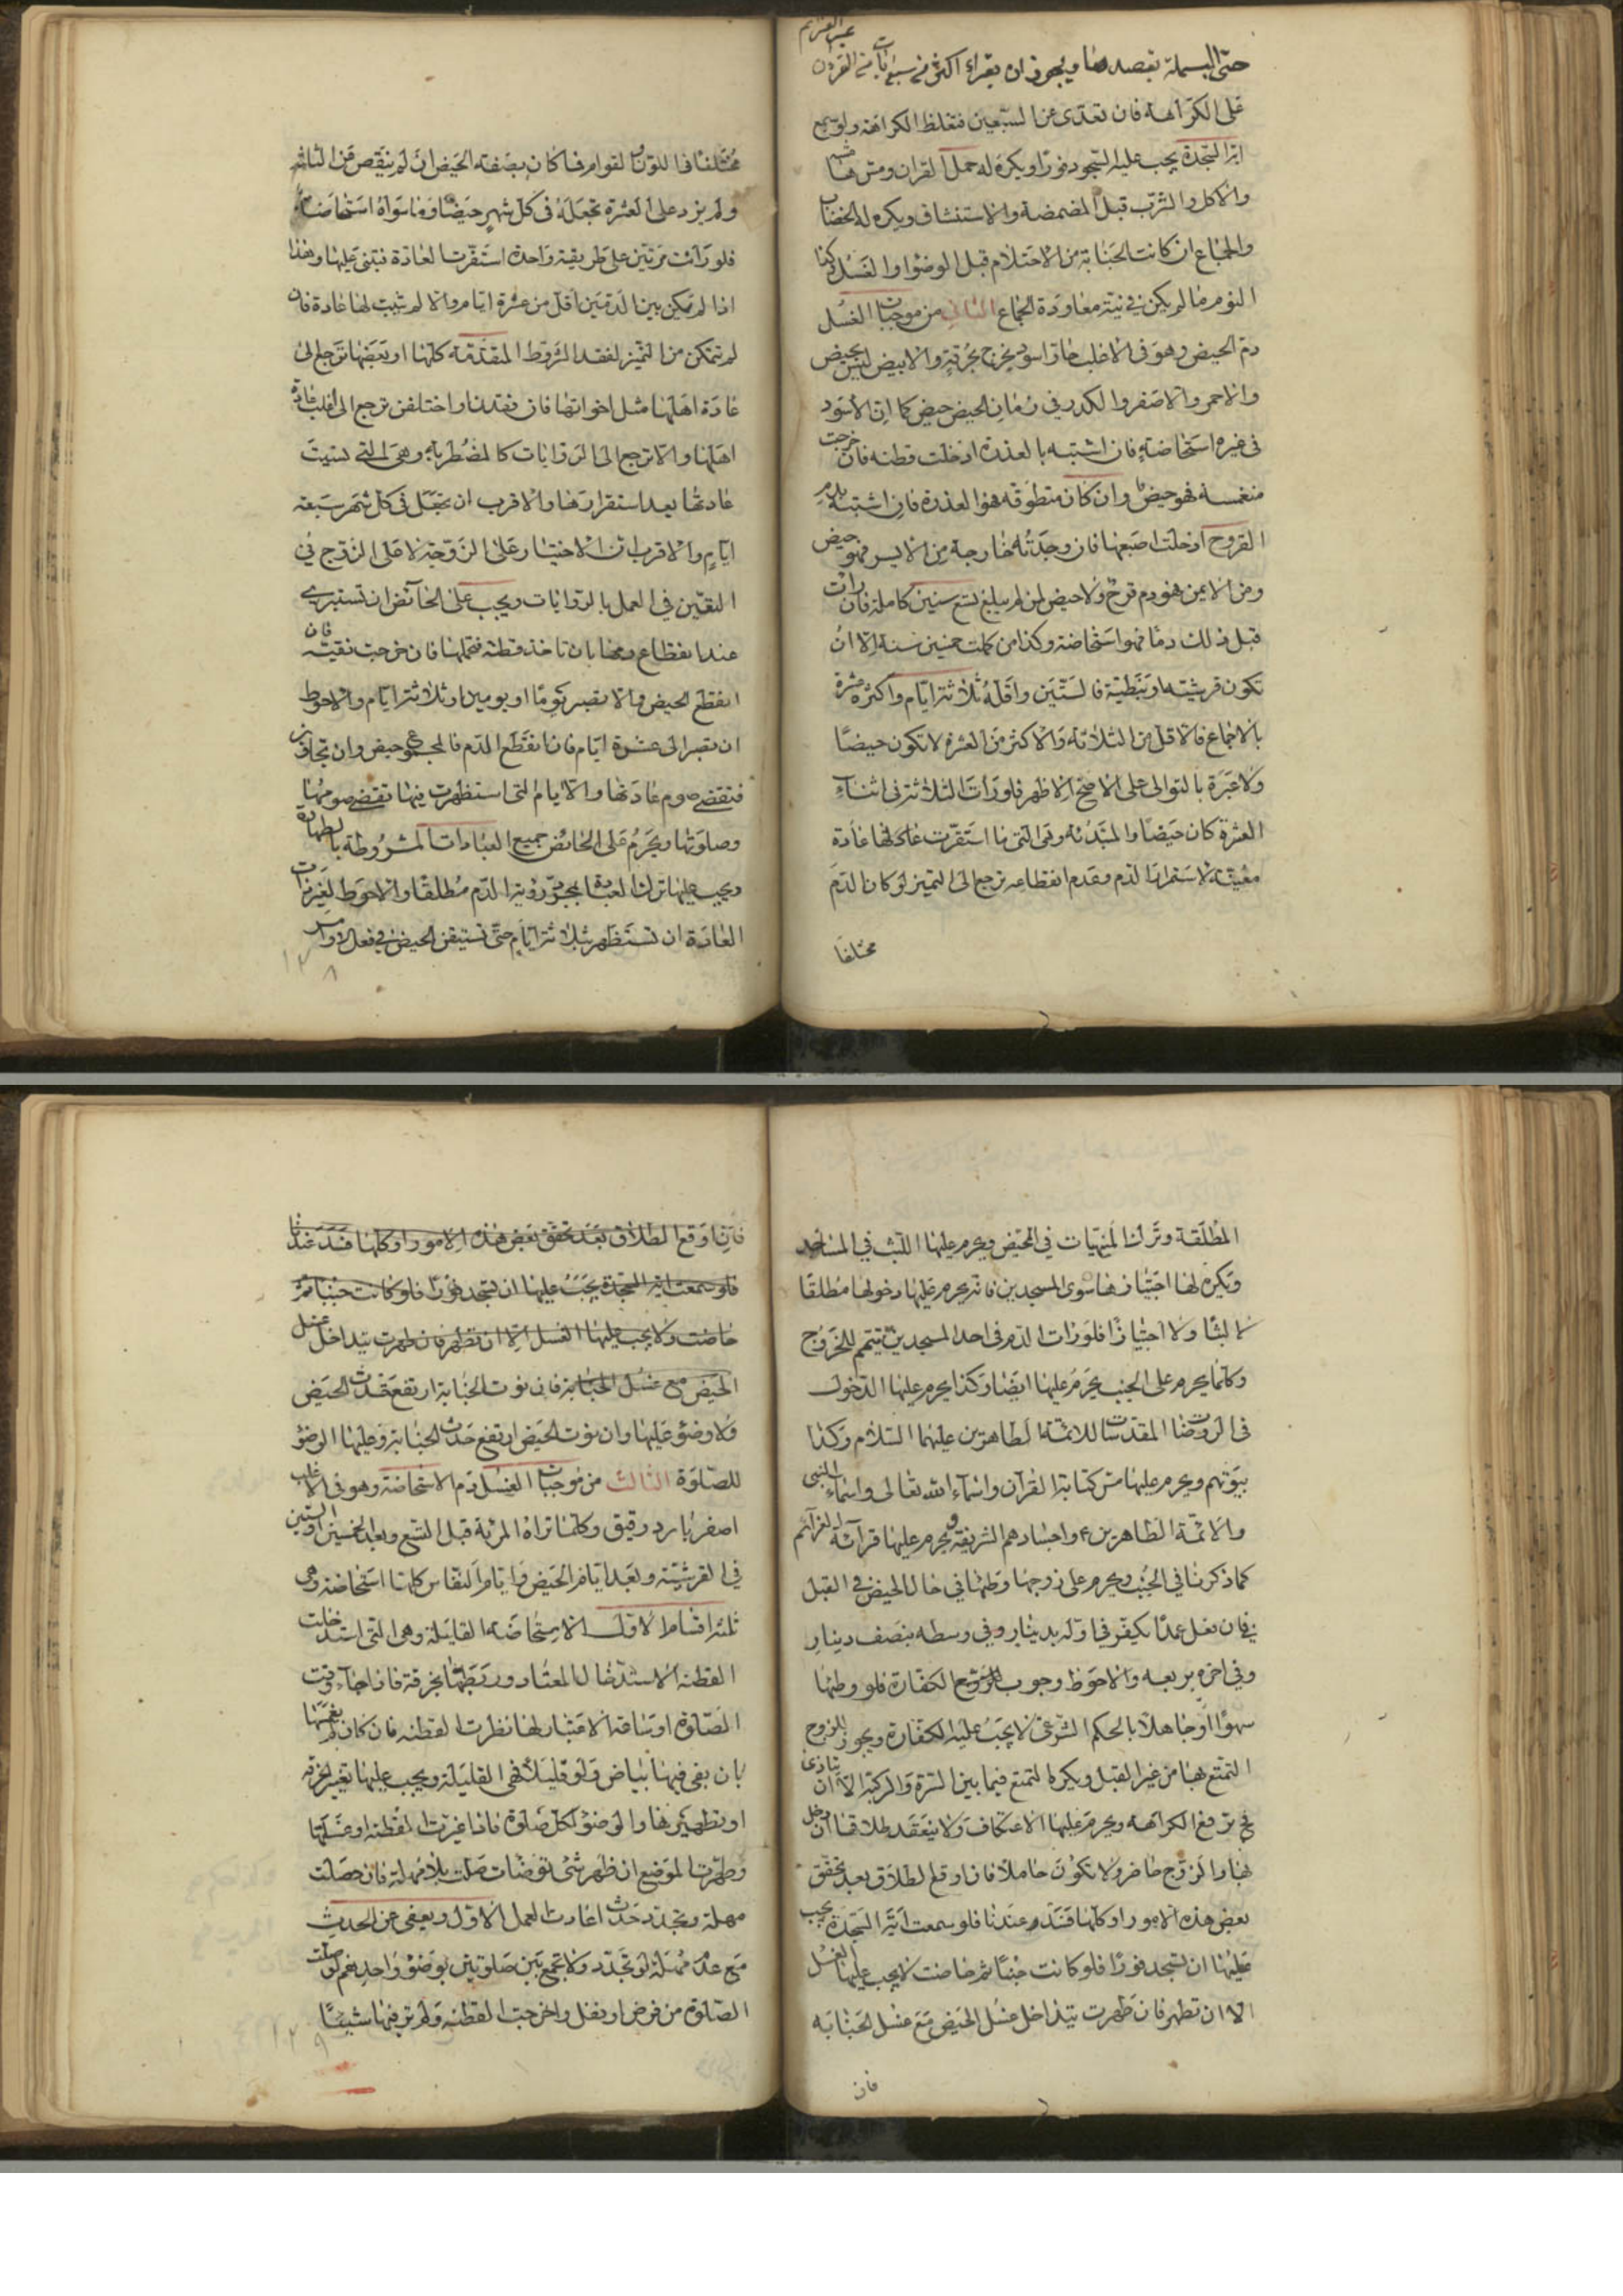 حتى البسملة بقصدها ويجوز ان يقراء اكثر من سبع ايات من القرءان
غير العزائم
على الكراهة فان تعدى عن السبعين فتغلظ الكراهة ولو سمع
اية السجدة يجب عليه السجود فورا ويكره له حمل القران ومس
والاكل والشرب قبل المضمضة والاستنشاق ويكره له الخضاب
والجماع ان كانت الجنابة من الاحتلام قبل الوضوء او الغسل وكذا
النوم ما لم يكن في نيته معاودة الجماع الثاني من موجبات الغسل
دم الحيض وهو في الاغلب حار اسود يخرج بحرقة والابيض ليس بحيض
والاحمر والاصفر والكدر في زمان الحيض حيض كما ان الاسود
في غيره استحاضة فان اشتبه بالعذرة ادخلت قطنة فان خرجت
منغمسة فهو حيض وان كان متطوقة فهو العذرة فان اشتبه بدم
القروح ادخلت اصبعها فان وجدته خارجة من الايسر فهو حيض
ومن الايمن فهو دم قرح ولا حيض لمن لم يبلغ تسع سنين كاملة فان رات
قبل ذلك دما فهو استحاضة وكذا من كملت خمسين سنة الا ان
تكون قرشية او نبطية فالستين واقله ثلاثة ايام واكثره عشرة
بالاجماع فالاقل من الثلاثة والاكثر من العشرة لا تكون حيضا
ولا عبرة بالتوالى على الاصح الاظهر فلو رات الثلاثة في اثناء
العشرة كان حيضا والمبتدئه وهى التي ما استقرت لها عادة
معينة لاستمرار الدم وعدم انقطاعه ترجع الى التميز لو كان الدم
مختلفا
مختلفا في اللون او القوام فما كان بصفة الحيض ان لم ينقص من الثلثه
ولم يزد على العشرة تجعله في كل شهر حيضا وما سواه استحاضة
فلو رات مرتين على طريقة واحدة استقرت العادة فتبنى عليها وهذا
اذا لم تمكن بين الدمين اقل من عشرة ايام والا لم تثبت لها عادة فان
لم تتمكن من التميز لفقد الشروط المقدمة كلها او بعضها ترجع الى
عادة اهلها مثل اخواتها فان فقدن او اختلفن ترجع الى اغلب عادة
اهلها والا ترجع الى الروايات كالمضطربة وهى التي نسيت
عادتها بعد استقرارها والاقرب ان تجعل في كل شهر سبعة
ايام والاقرب ان الاختيار على الزوجة لا على الزوج في
التعين في العمل بالروايات ويجب على الحائض ان تستبرء
عند انقطاع دمها بان تاخذ قطنة فتحملها فان خرجت نقية فان
انقطع الحيض والا تصبر يوما او يومين او ثلاثة ايام والاحوط
ان تصبر الى عشرة ايام فان انقطع الدم فالمجموع حيض وان تجاوز
فتقضى صوم عادتها والايام التي استظهرت فيها تقضى صومها
وصلوتها ويحرم على الحائض جميع العبادات المشروطة بالطهارة
ويجب عليها ترك العبادة بمجرد رؤية الدم مطلقا والاحوط لغير ذات
العادة ان تستظهر بثلاثة ايام حتى تستيقن الحيض في فعل الاوامر
١٢٨
المطلقة وترك المنهيات في الحيض ويحرم عليها اللبث في المساجد
ويكره لها اجتيازها سوى المسجدين فانه يحرم عليها دخولها مطلقا
لا لبثا ولا اجتيازا فلو رات الدم في احد المسجدين تتيمم للخروج
وكلما يحرم على الجنب يحرم عليها ايضا وكذا يحرم عليها الدخول
في الروضات المقدسات للائمة الطاهرين عليهما السلام وكذا
بيوتهم ويحرم عليها مس كتابة القرآن واسماء الله تعالى واسماء النبي
والائمة الطاهرين ع واجسادهم الشريفة ويحرم عليها قرآئة العزآئم
كما ذكرنا في الجنب ويحرم على زوجها وطئها في حال الحيض في القبل
فان فعل عمدا يكفر في اوله بدينار وفي وسطه بنصف دينار
وفي اخره بربعه والاحوط وجوب الكفارة فلو وطئها
سهوا او جاهلا بالحكم الشرعى لا يجب عليه الكفارة ويجوز للزوج
التمتع بها من غير القبل ويكره التمتع فيما بين السرة والركبة الا ان
ترفع الكراهة ويحرم عليها الاعتكاف ولا ينعقد طلاقها ان دخل
بها والزوج حاضر ولا تكون حاملا فان اوقع الطلاق بعد تحقق
بعض هذه الامور او كلها فسد عندنا فلو سمعت اية السجدة يجب
عليها ان تسجد فورا فلو كانت جنبا ثم حاضت لا يجب عليها الغسل
الا ان تطهر فان طهرت يتداخل غسل الحيض مع غسل الجنابه
فان
فان اوقع الطلاق بعد تحقق بعض هذه الامور او كلها فسد عندنا
فلو سمعت اية السجدة يجب عليها ان تسجد فورا فلو كانت جنبا ثم
حاضت ولا يجب عليها الغسل الا ان تطهر فان طهرت يتداخل غسل
الحيض مع غسل الجنابة فان نوت الجنابة ارتفع حدث الحيض
ولا وضوء عليها وان نوت الحيض ارتفع حدث الجنابة وعليها الوضوء
للصلوة الثالث من موجبات الغسل دم الاستحاضة وهو في الاغلب
اصفر بارد رقيق وكلما تراه المرئة قبل التسع وبعد الخمسين او الستين
في القرشية وبعد ايام الحيض وايام النفاس كلها استحاضة وهى
ثلثة اقسام الاول الاستحاضة القليلة وهى التي استدخلت
القطنة الاستدخال المعتاد وربطها بخرقة فاذا جاء وقت
الصلوة او شاقه الاعتبار لها نظرت القطنة فان كان لم يغمسها
بان بقى فيها بياض ولو قليلا فهى القليلة ويجب عليها تغيير الخرقة
او تطهيرها والوضوء لكل صلوة فاذا غيرت القطنة او غسلتها
وطهرت الموضع ان ظهر شئ توضات صلت بلا مهلة فان حصلت
مهلة وتجدد حدث اعادت العمل الاول ويعفى عن الحدث
مع عدم مهلة لو تجدد ولا تجمع بين صلوتين بوضوء واحد نعم لو صلت
الصلوة من فرض او نفل واخرجت القطنة ولم تر فيها شيئا
١٢٩